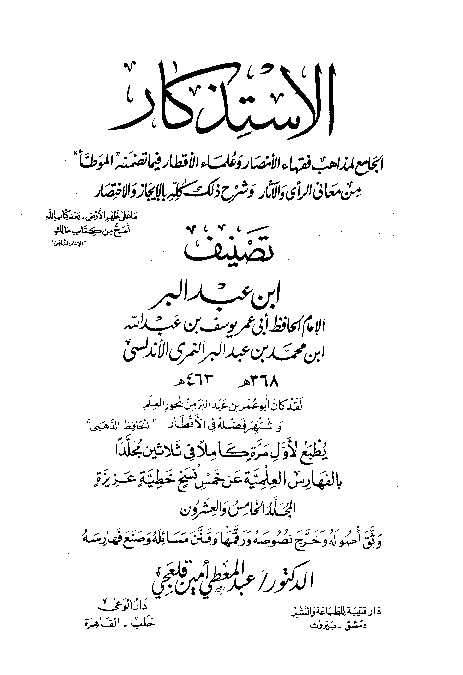 الاستذكار
الجامع لمذاهب فقهاء الأمصار وعلماء الأقطار فيما تضمنه "الموطأ"
من معاني الرأي والآثار وشرح ذلك كله بالإيجاز والاختصار
ما على ظهر الأرض - بعد كتاب الله
أصح من كتاب مالك
"الإمام الشافعي"
تصنيف
ابن عبد البر
الإمام الحافظ أبي عمر يوسف بن عبد الله
ابن محمد بن عبد البر النمري الأندلسي
٣٦٨هـ ٤٦٣هـ
لقد كان أبو عمر بن عبد البر من بحور العلم
واشتهر فضله في الأقطار "الحافظ الذهبي"
يطبع لأول مرة كاملا في ثلاثين مجلدا
بالفهارس العلمية عن خمس نسخ خطية عزيزة
المجلد الخامس والعشرون
وثق أصوله وخرج نصوصه ورقمها وقنن مسائله وصنع فهارسه
الدكتور/ عبد المعطي أمين قلعجي
دار قتيبة للطباعة والنشر
دمشق - بيروت
دار الوعي
حلب - القاهرة